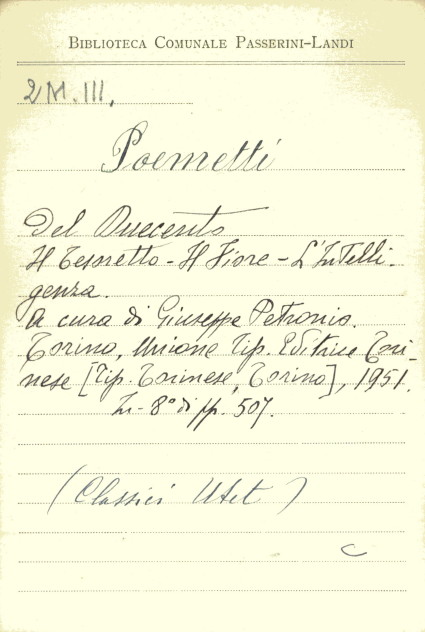 BIBLIOTECA COMUNALE PASSERINI-LANDI
2 M. III.
Poemetti
Del Duecento
Il Tesoretto - Il Fiore - L'Intelli-
genza.
A cura di Giuseppe Petronio.
Torino, Unione Tip. Editrice Tori-
nese [Tip. Torinese, Torino], 1951.
In-8° di pp. 507.
(Classici Utet)
C